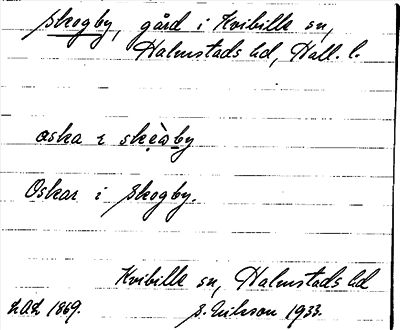 Skogby, gård i Kvibille sn,
Halmstads hd, Hall. l.
oska i skèoby
Oskar i Skogby.
Kvibille sn, Halmstads hd
1869.
S. Erikson 1933.